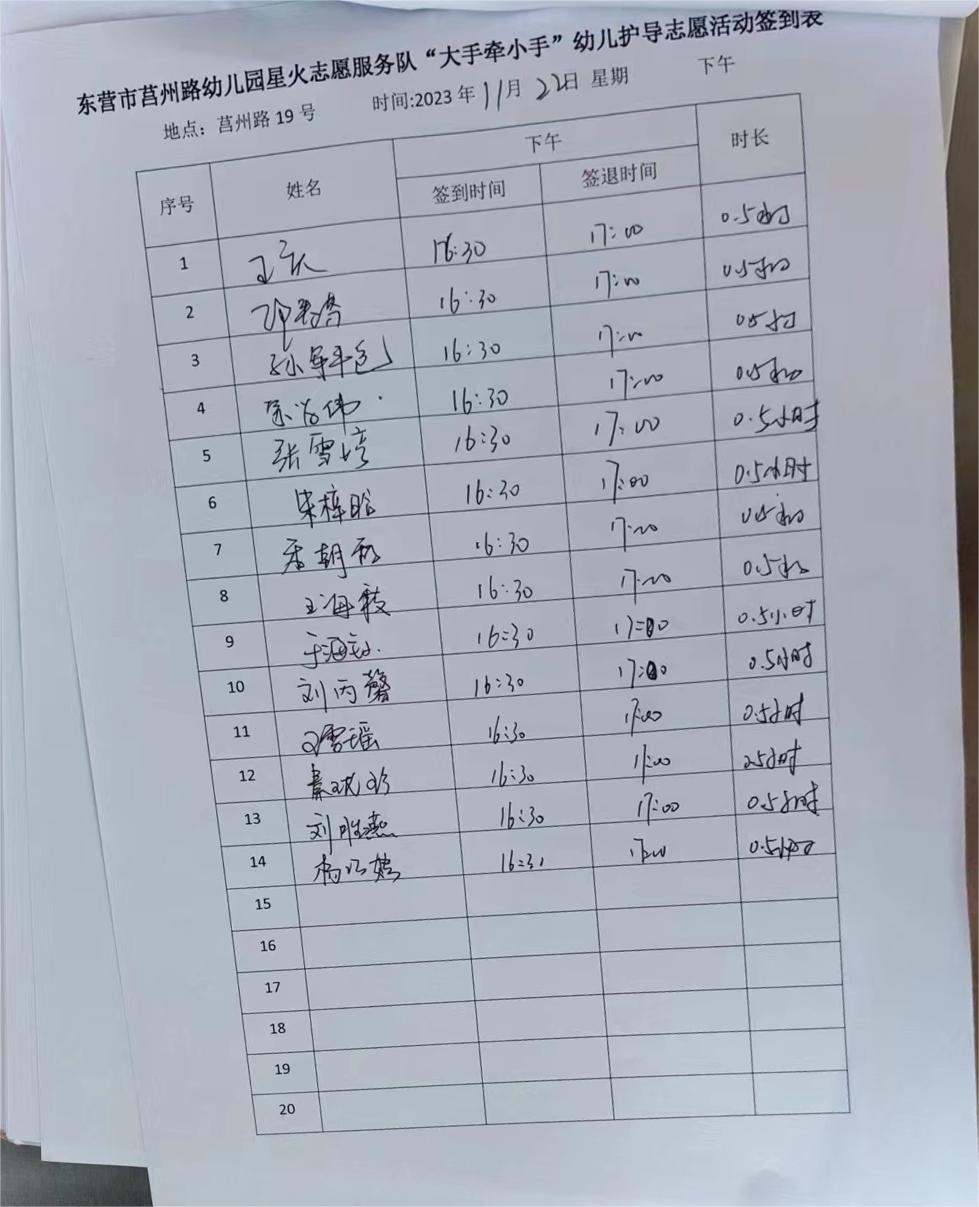 东营市莒州路幼儿园星火志愿服务队“大手牵小手”幼儿护导志愿活动签到表
地点：莒州路 19 号 时间:2023 年 11 月 22 日 星期 下午
序号 姓名 下午 时长
签到时间 签退时间
1 16:30 17:00 0.5小时
2 16:30 17:00 0.5小时
3 16:30 17:00 0.5小时
4 16:30 17:00 0.5小时
5 张雪培 16:30 17:00 0.5小时
6 朱梓晗 16:30 17:00 0.5小时
7 16:30 17:00 0.5小时
8 王海毅 16:30 17:00 0.5小时
9 16:30 17:00 0.5小时
10 刘丙馨 16:30 17:00 0.5小时
11 王雪瑶 16:30 17:00 0.5小时
12 16:30 17:00 0.5小时
13 刘胜燕 16:30 17:00 0.5小时
14 16:31 17:00 0.5小时
15
16
17
18
19
20